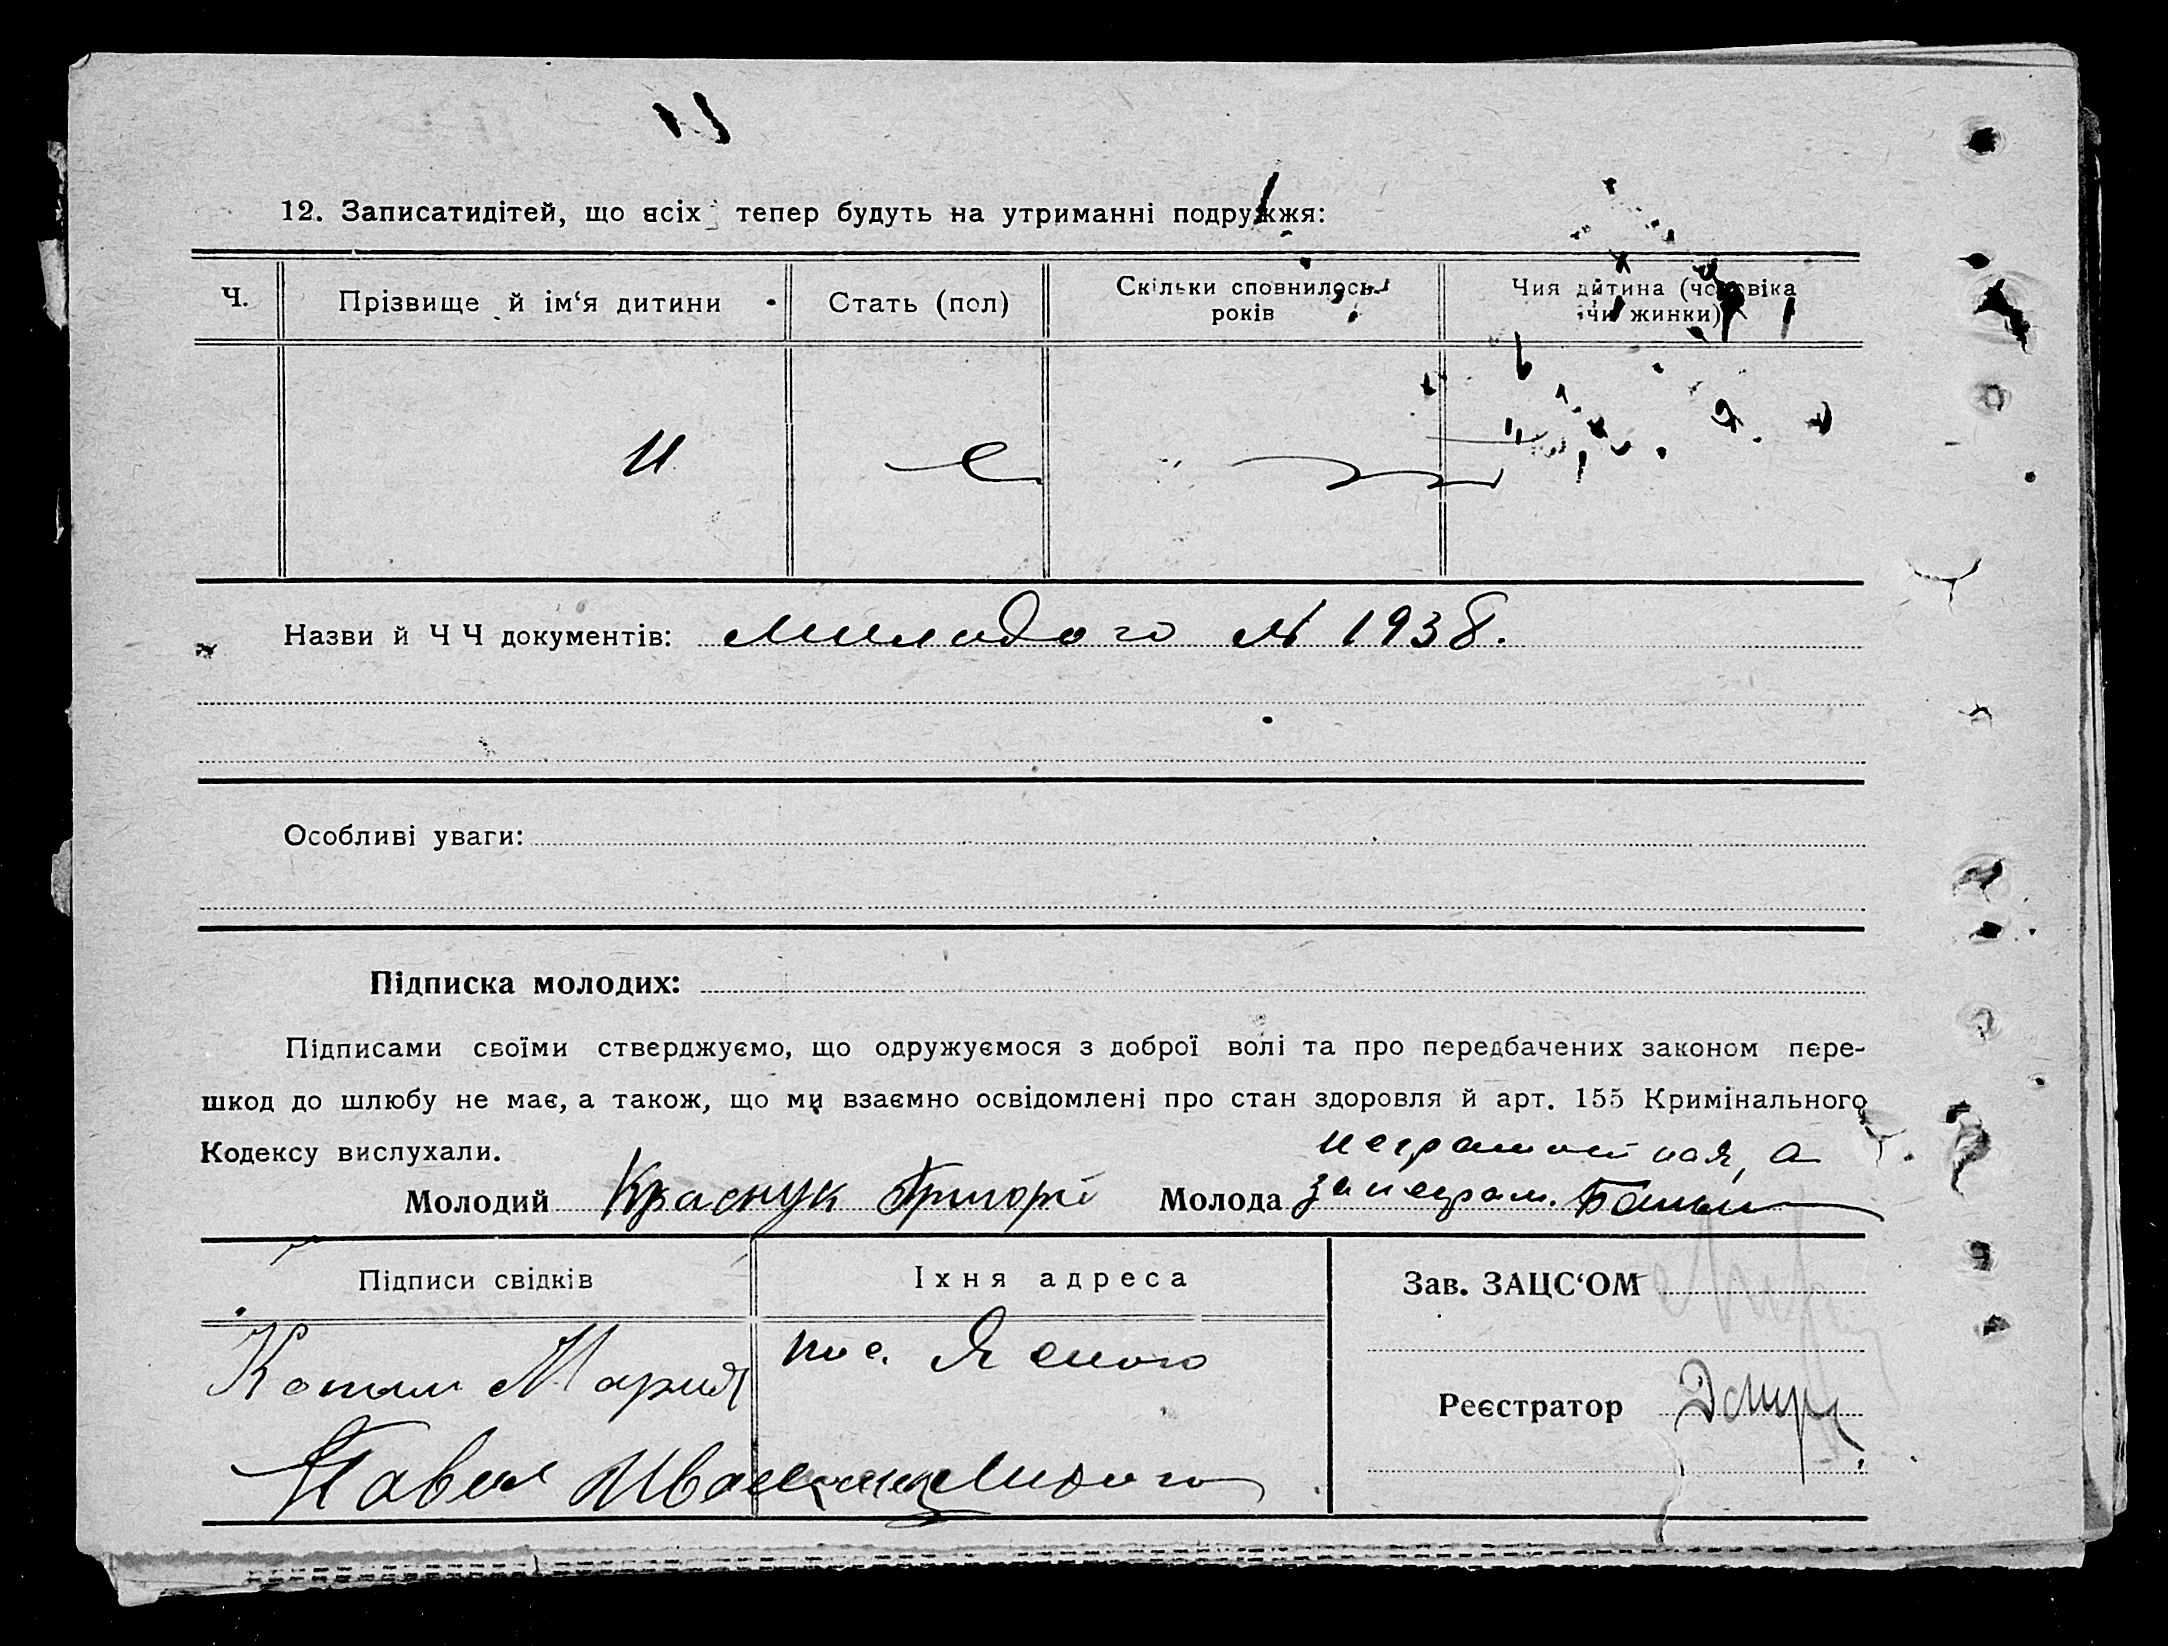 12. Записатидітей, що всіх тепер будуть на утриманні подружжя:
Ч.
Прізвище й ім‘я дитини
Стать (пол)
Скільки сповнилось
років
Чия дитина (чоловіка
чи жинки)
Назви й Ч Ч документів: № 1938.
Особливі уваги:
Підписка молодих:
Підписами своїми стверджуємо, що одружуємося з доброї волі та про передбачених законом пере-
шкод до шлюбу не має, а також, що ми взаємно освідомлені про стан здоровля й арт. 155 Кримінального
Кодексу вислухали.
неграмотная, а
Молодий Краснук Григорі Молода за неграм.
Підписи свідків
Їхня адреса
Зав. ЗАЦС‘ОМ
Мария
пос. Ясного
Реєстратор